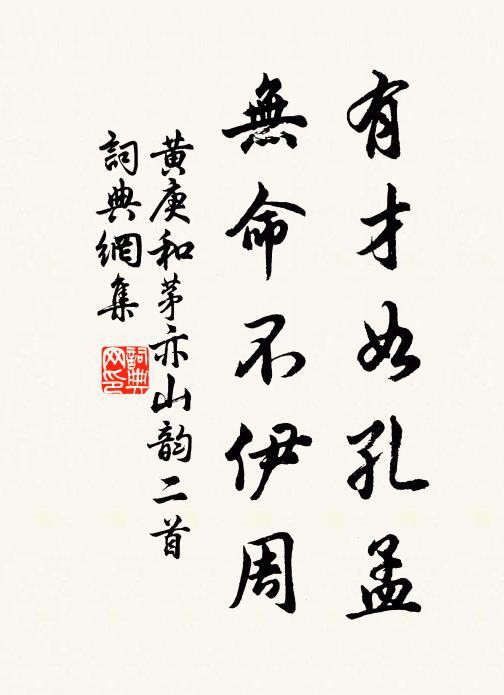 有才如孔孟
無命不伊周
黃庚和茅亦山韵二首
詞典網集
詞典網印